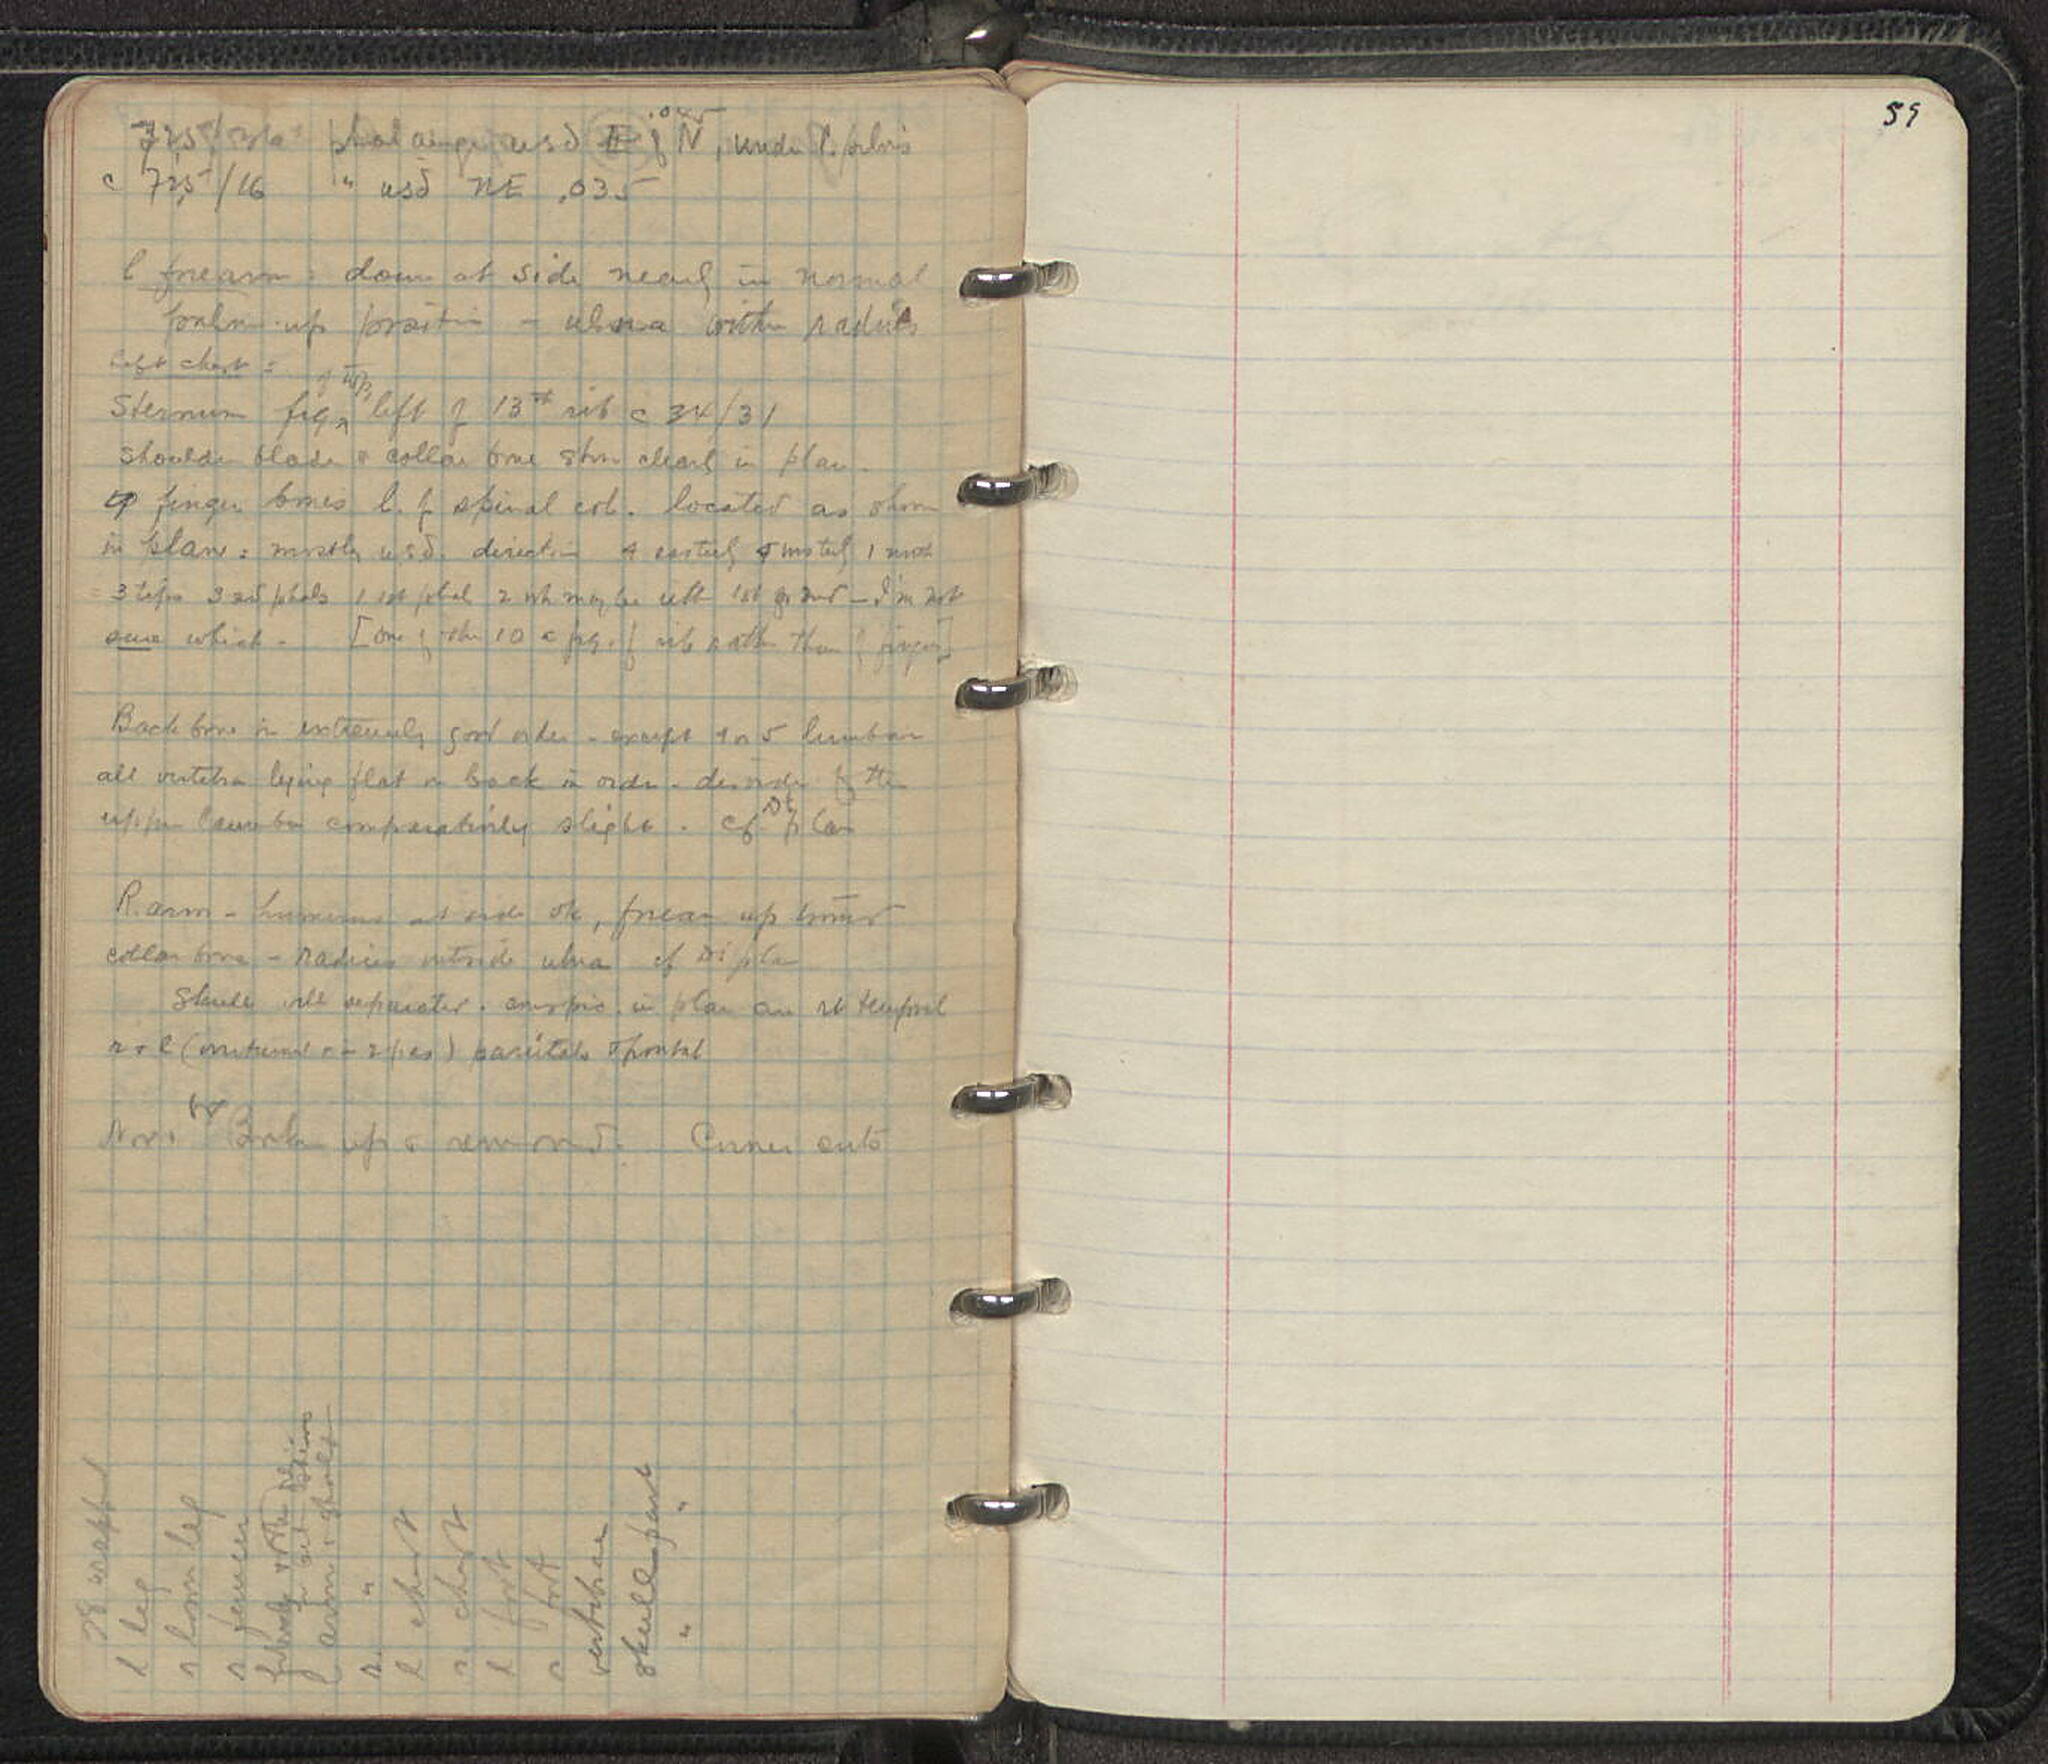 59
phalange usd E of N, under l. pelvis
.045
c 725/16 " usd NE .035
l forearm: down at side nearly in normal
palm-up position - ulna within radius
Left chest:
Sternum frg of top, left of 13th rib c 34/31
Shoulder blade & collar bone show clearly in plan.
finger bones l. of spinal col. located as shown
in plan: mostly usd. direction 4 easterly 5 westerly 1 north
3 tips 3 2nd phals 1 1st phal 2 wh may be eith 1st or 2nd - I'm not
sure which. [one of the 10 a frg. of rib rather than of finger]
Back bone in extremely good order - except 4 or 5 lumbar
all vertebra lying flat on back in order - disorder of the
upper lumbar comparatively slight. cf. Dt plan
R. arm - humerus at side ok, forearm up toward
collar bone - radius outside ulna cf Dt plan
Skull all separated. conspic. in plan are rt temporal
r & l (overturned & in 2 pces) parietals & frontal
Now Broken up & removed. Corner cuts
28 wrapped
l leg
r lower leg
r femur
l arm & 
r. "
l chest
r. chest
l foot
r foot
vertebrae
skull part
" "